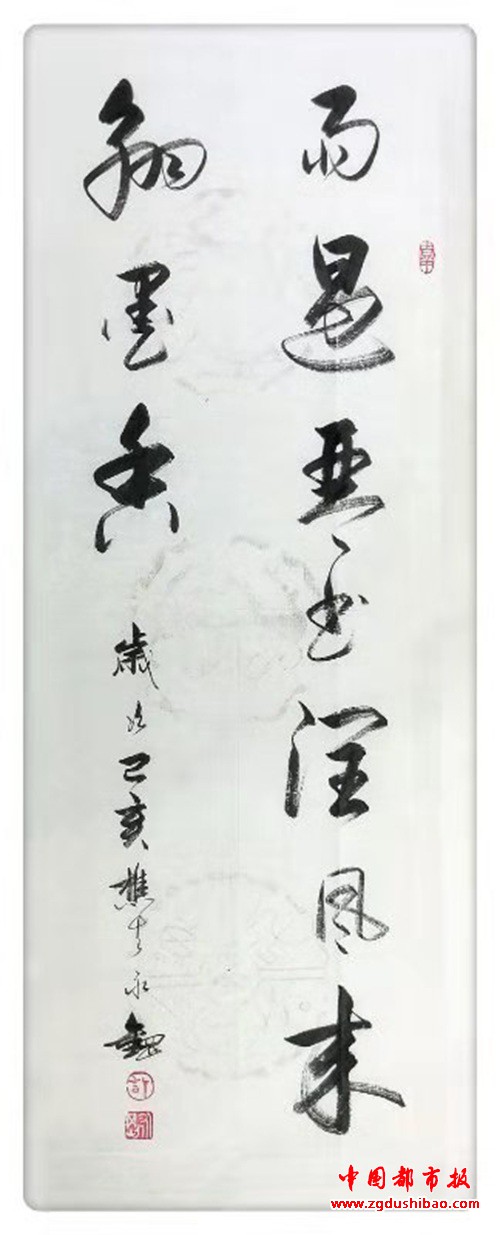 雨過琴書潤風来
翰墨香
歲次己亥樵夫永
中国都市报
www.zgdushibao.com